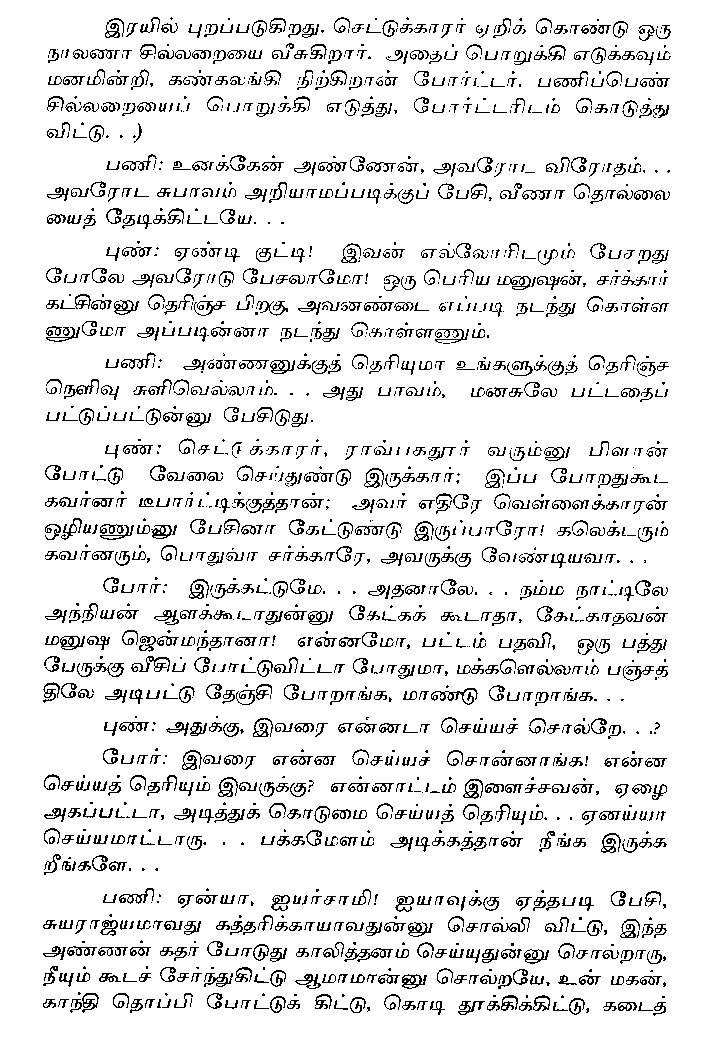 இரயில் புறப்படுகிறது. செட்டுக்காரர் ஏறிக் கொண்டு ஒரு
நாலணா சில்லறையை வீசுகிறார். அதைப் பொறுக்கி எடுக்கவும்
மனமின்றி, கண்கலங்கி நிற்கிறான் போர்ட்டர். பணிப்பெண்
சில்லறையைப் பொறுக்கி எடுத்து, போர்ட்டரிடம் கொடுத்து
விட்டு. . .)
பணி: உனக்கேன் அண்ணேன், அவரோட விரோதம். . .
அவரோட சுபாவம் அறியாமப்படிக்குப் பேசி, வீணா தொல்லை
யைத் தேடிக்கிட்டயே. . .
புண்: ஏண்டி குட்டி! இவன் எல்லோரிடமும் பேசறது
போலே அவரோடு பேசலாமோ! ஒரு பெரிய மனுஷன், சர்க்கார்
கட்சின்னு தெரிஞ்ச பிறகு, அவனண்டை எப்படி நடந்து கொள்ள
ணுமோ அப்படின்னா நடந்து கொள்ளணும்.
பணி: அண்ணனுக்குத் தெரியுமா உங்களுக்குத் தெரிஞ்ச
நெளிவு சுளிவெல்லாம். . . அது பாவம், மனசுலே பட்டதைப்
பட்டுப்பட்டுன்னு பேசிடுது.
புண்: செட்டுக்காரர், ராவ்பகதூர் வரும்னு பிளான்
போட்டு வேலை செய்துண்டு இருக்கார்; இப்ப போறதுகூட
கவர்னர் டீபார்ட்டிக்குத்தான்; அவர் எதிரே வெள்ளைக்காரன்
ஒழியணும்னு பேசினா கேட்டுண்டு இருப்பாரோ! கலெக்டரும்
கவர்னரும், பொதுவா சர்க்காரே, அவருக்கு வேண்டியவா. . .
போர்: இருக்கட்டுமே. . . அதனாலே. . . நம்ம நாட்டிலே
அந்நியன் ஆளக்கூடாதுன்னு கேட்கக் கூடாதா, கேட்காதவன்
மனுஷ ஜென்மந்தானா! என்னமோ, பட்டம் பதவி, ஒரு பத்து
பேருக்கு வீசிப் போட்டுவிட்டா போதுமா, மக்களெல்லாம் பஞ்சத்
திலே அடிபட்டு தேஞ்சி போறாங்க, மாண்டு போறாங்க. . .
புண்: அதுக்கு, இவரை என்னடா செய்யச் சொல்றே. . .?
போர்: இவரை என்ன செய்யச் சொன்னாங்க! என்ன
செய்யத் தெரியும் இவருக்கு? என்னாட்டம் இளைச்சவன், ஏழை
அகப்பட்டா, அடித்துக் கொடுமை செய்யத் தெரியும். . . ஏனய்யா
செய்யமாட்டாரு. . . பக்கமேளம் அடிக்கத்தான் நீங்க இருக்க
றீங்களே. . .
பணி: ஏன்யா, ஐயர்சாமி! ஐயாவுக்கு ஏத்தபடி பேசி,
சுயராஜ்யமாவது கத்தரிக்காயாவதுன்னு சொல்லி விட்டு, இந்த
அண்ணன் கதர் போடுது காலித்தனம் செய்யுதுன்னு சொல்றாரு,
நீயும் கூடச் சேர்ந்துகிட்டு ஆமாமான்னு சொல்றயே, உன் மகன்,
காந்தி தொப்பி போட்டுக் கிட்டு, கொடி தூக்கிக்கிட்டு, கடைத்